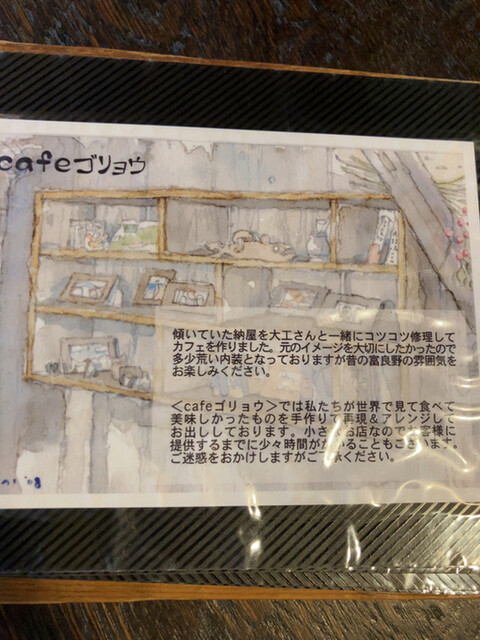 cafeゴリョウ
傾いていた納屋を大工さんと一緒にコツコツ修理して
カフェを作りました。元のイメージを大切にしたかったので
多少荒い内装となっておりますが昔の富良野の雰囲気を
お楽しみください。
＜cafeゴリョウ＞では私たちが世界で見て食べて
美味しかったものを手作りで再現＆アレンジして
お出ししております。小さなお店なのでお客様に
提供するまでに少々時間がかかることもございます。
ご迷惑をおかけしますがご了承ください。
'08